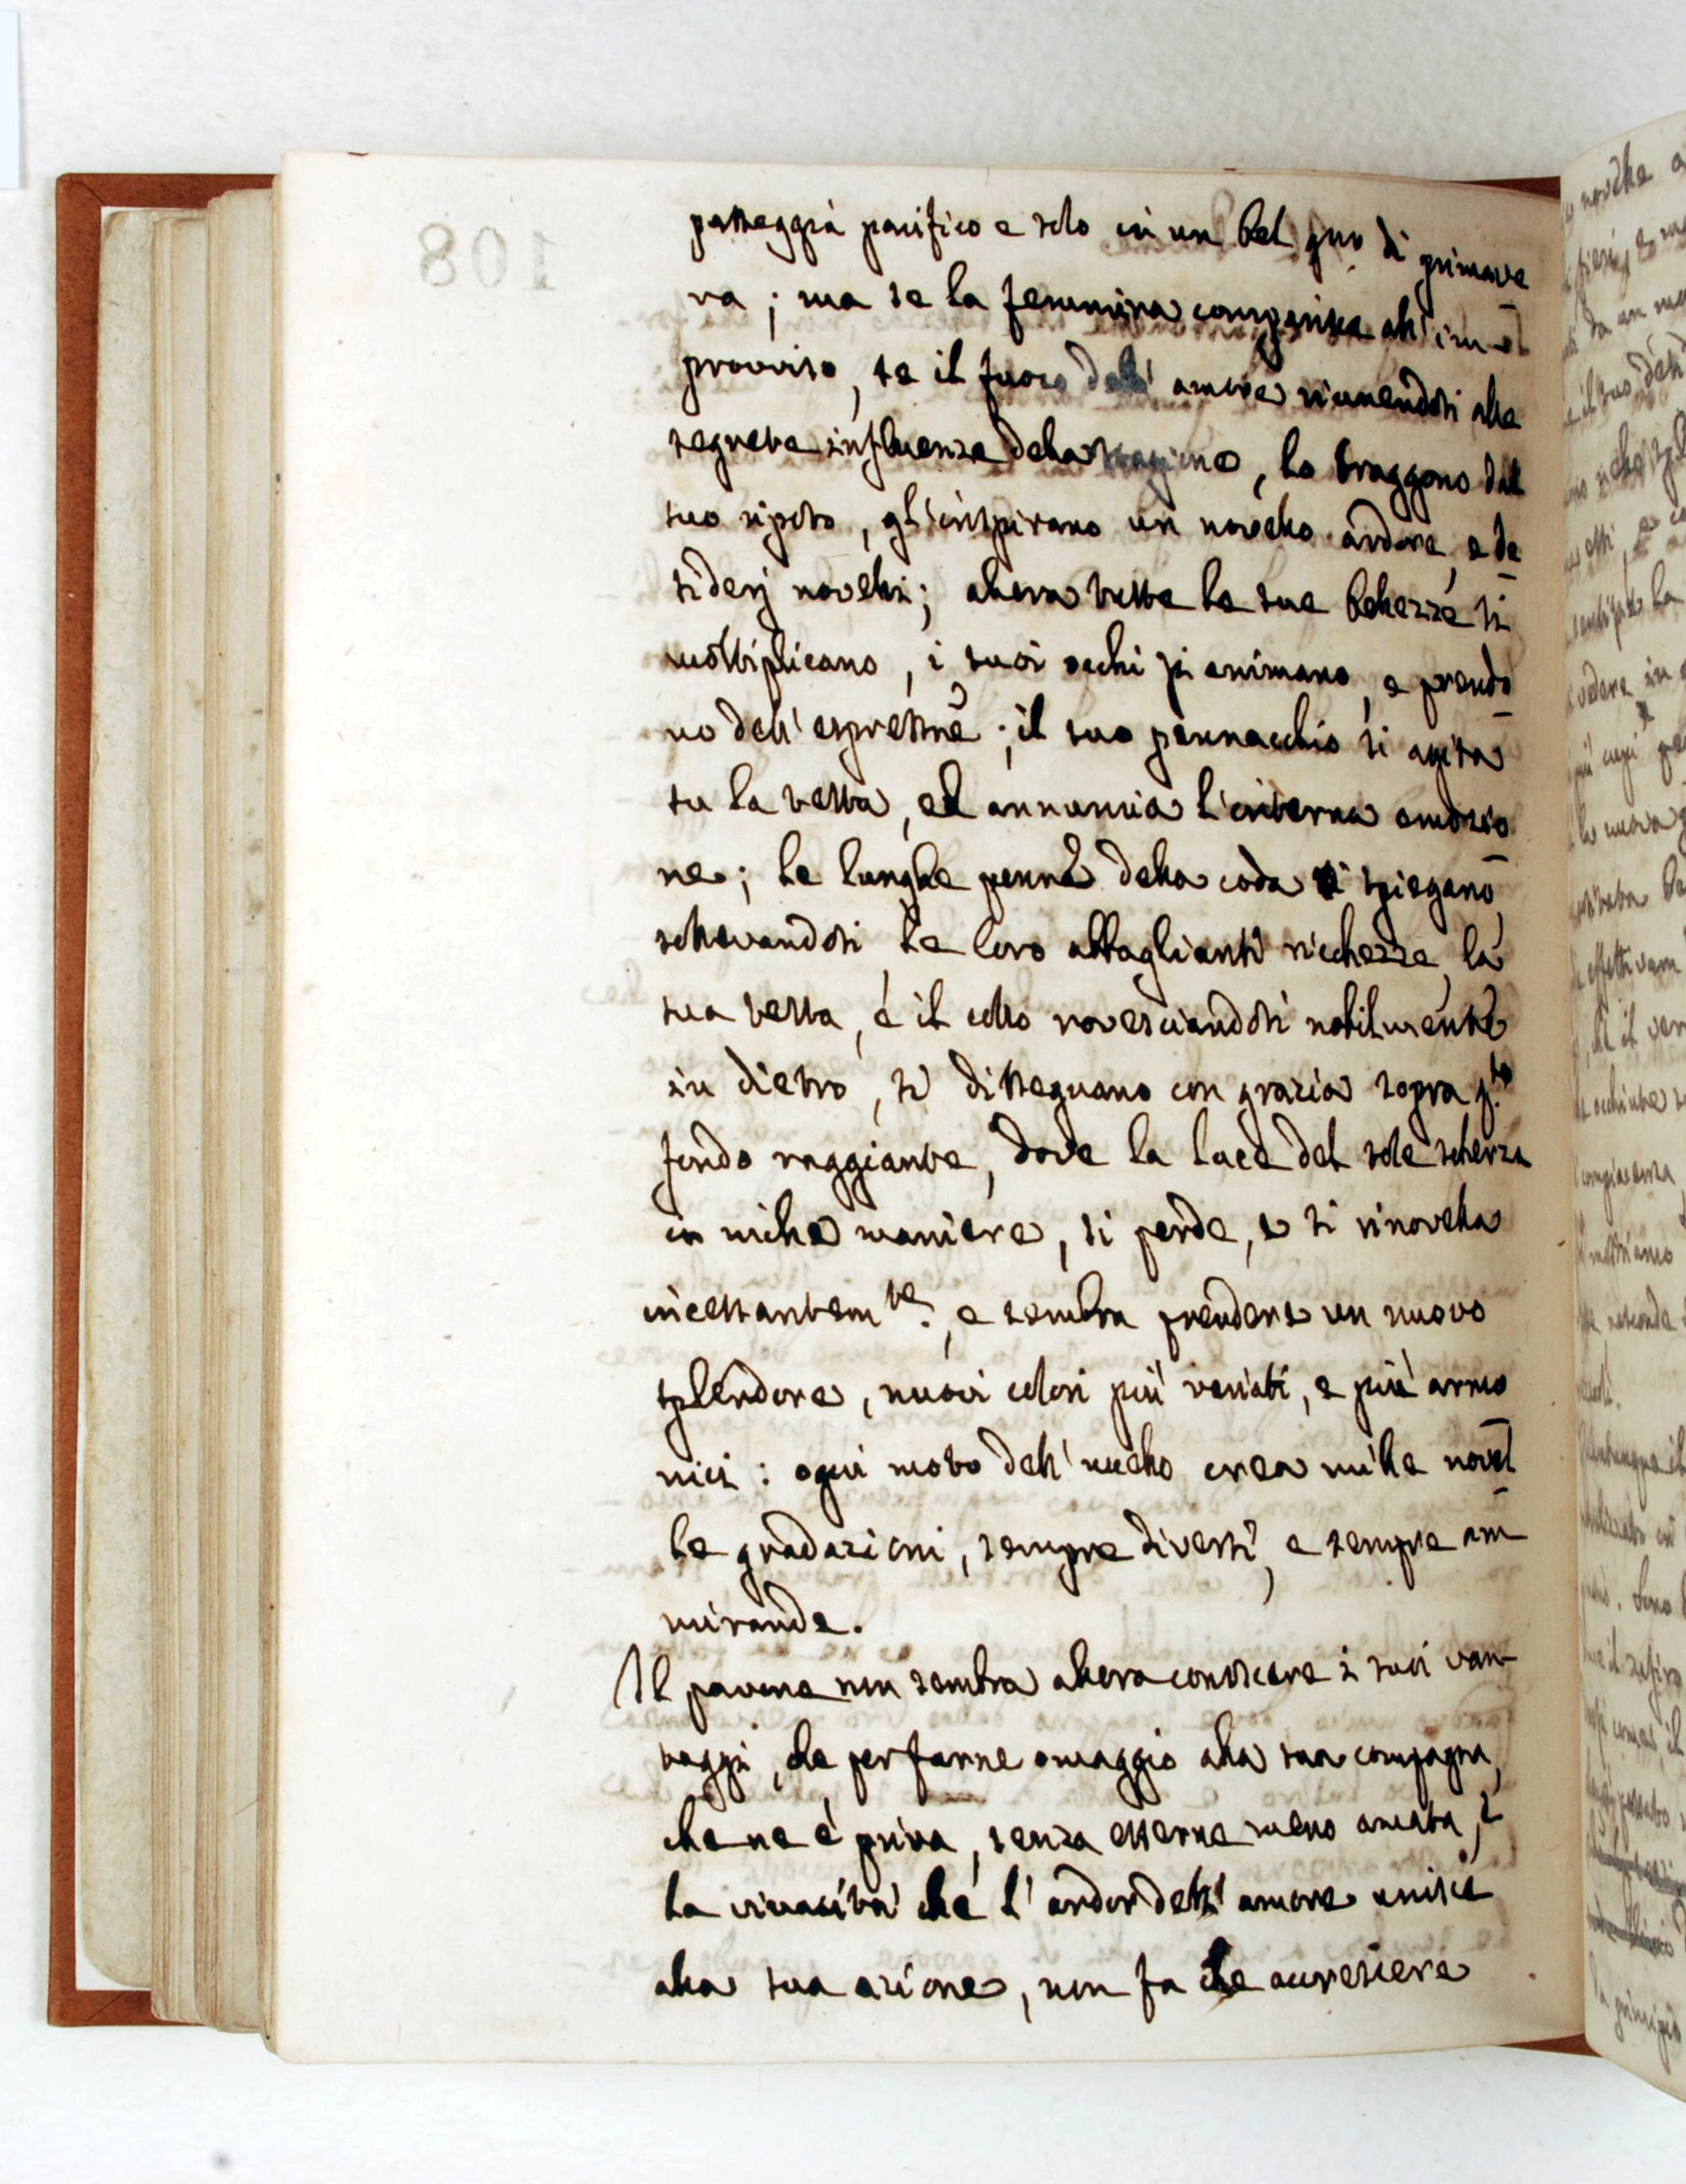 passeggia pacifico e solo in un bel gno di primave
ra; ma se la femmina comparisce all' im-
provviso, se il fuoco dell' amore riunendosi alle
segrete influenze della stagione, lo traggono dal
suo riposo, gl'inspirano un novello ardore, e de
siderj novelli; allora tutte le sue bellezze si
moltiplicano, i suoi occhi si animano, e prendo
no dell' espressne; il suo pennacchio si agita
su la testa, ed annuncia l'interna emozio
ne; le lunghe penne della coda si spiegano
sollevandosi le loro abbaglianti ricchezze, la
sua testa, e il collo rovesciandosi nobilmente
in dietro, si dissegnano con grazia sopra q.to
fondo raggiante, dove la luce del sole scherza
in mille maniere, si perde, e si rinovella
incessantem.te, e sembra prendere un nuovo
splendore, nuovi colori più variati, e più armo
nici: ogni moto dell' uccello crea mille novel
le gradazioni, sempre diversi, e sempre am
mirande.
Il pavone non sembra allora conoscere i suoi van-
taggi, che per farne omaggio alla sua compagna,
che ne è priva, senza esserne meno amata, e
la vivacità che l' ardor dell' amore unisce
alla sua azione, non fa che accrescere
108